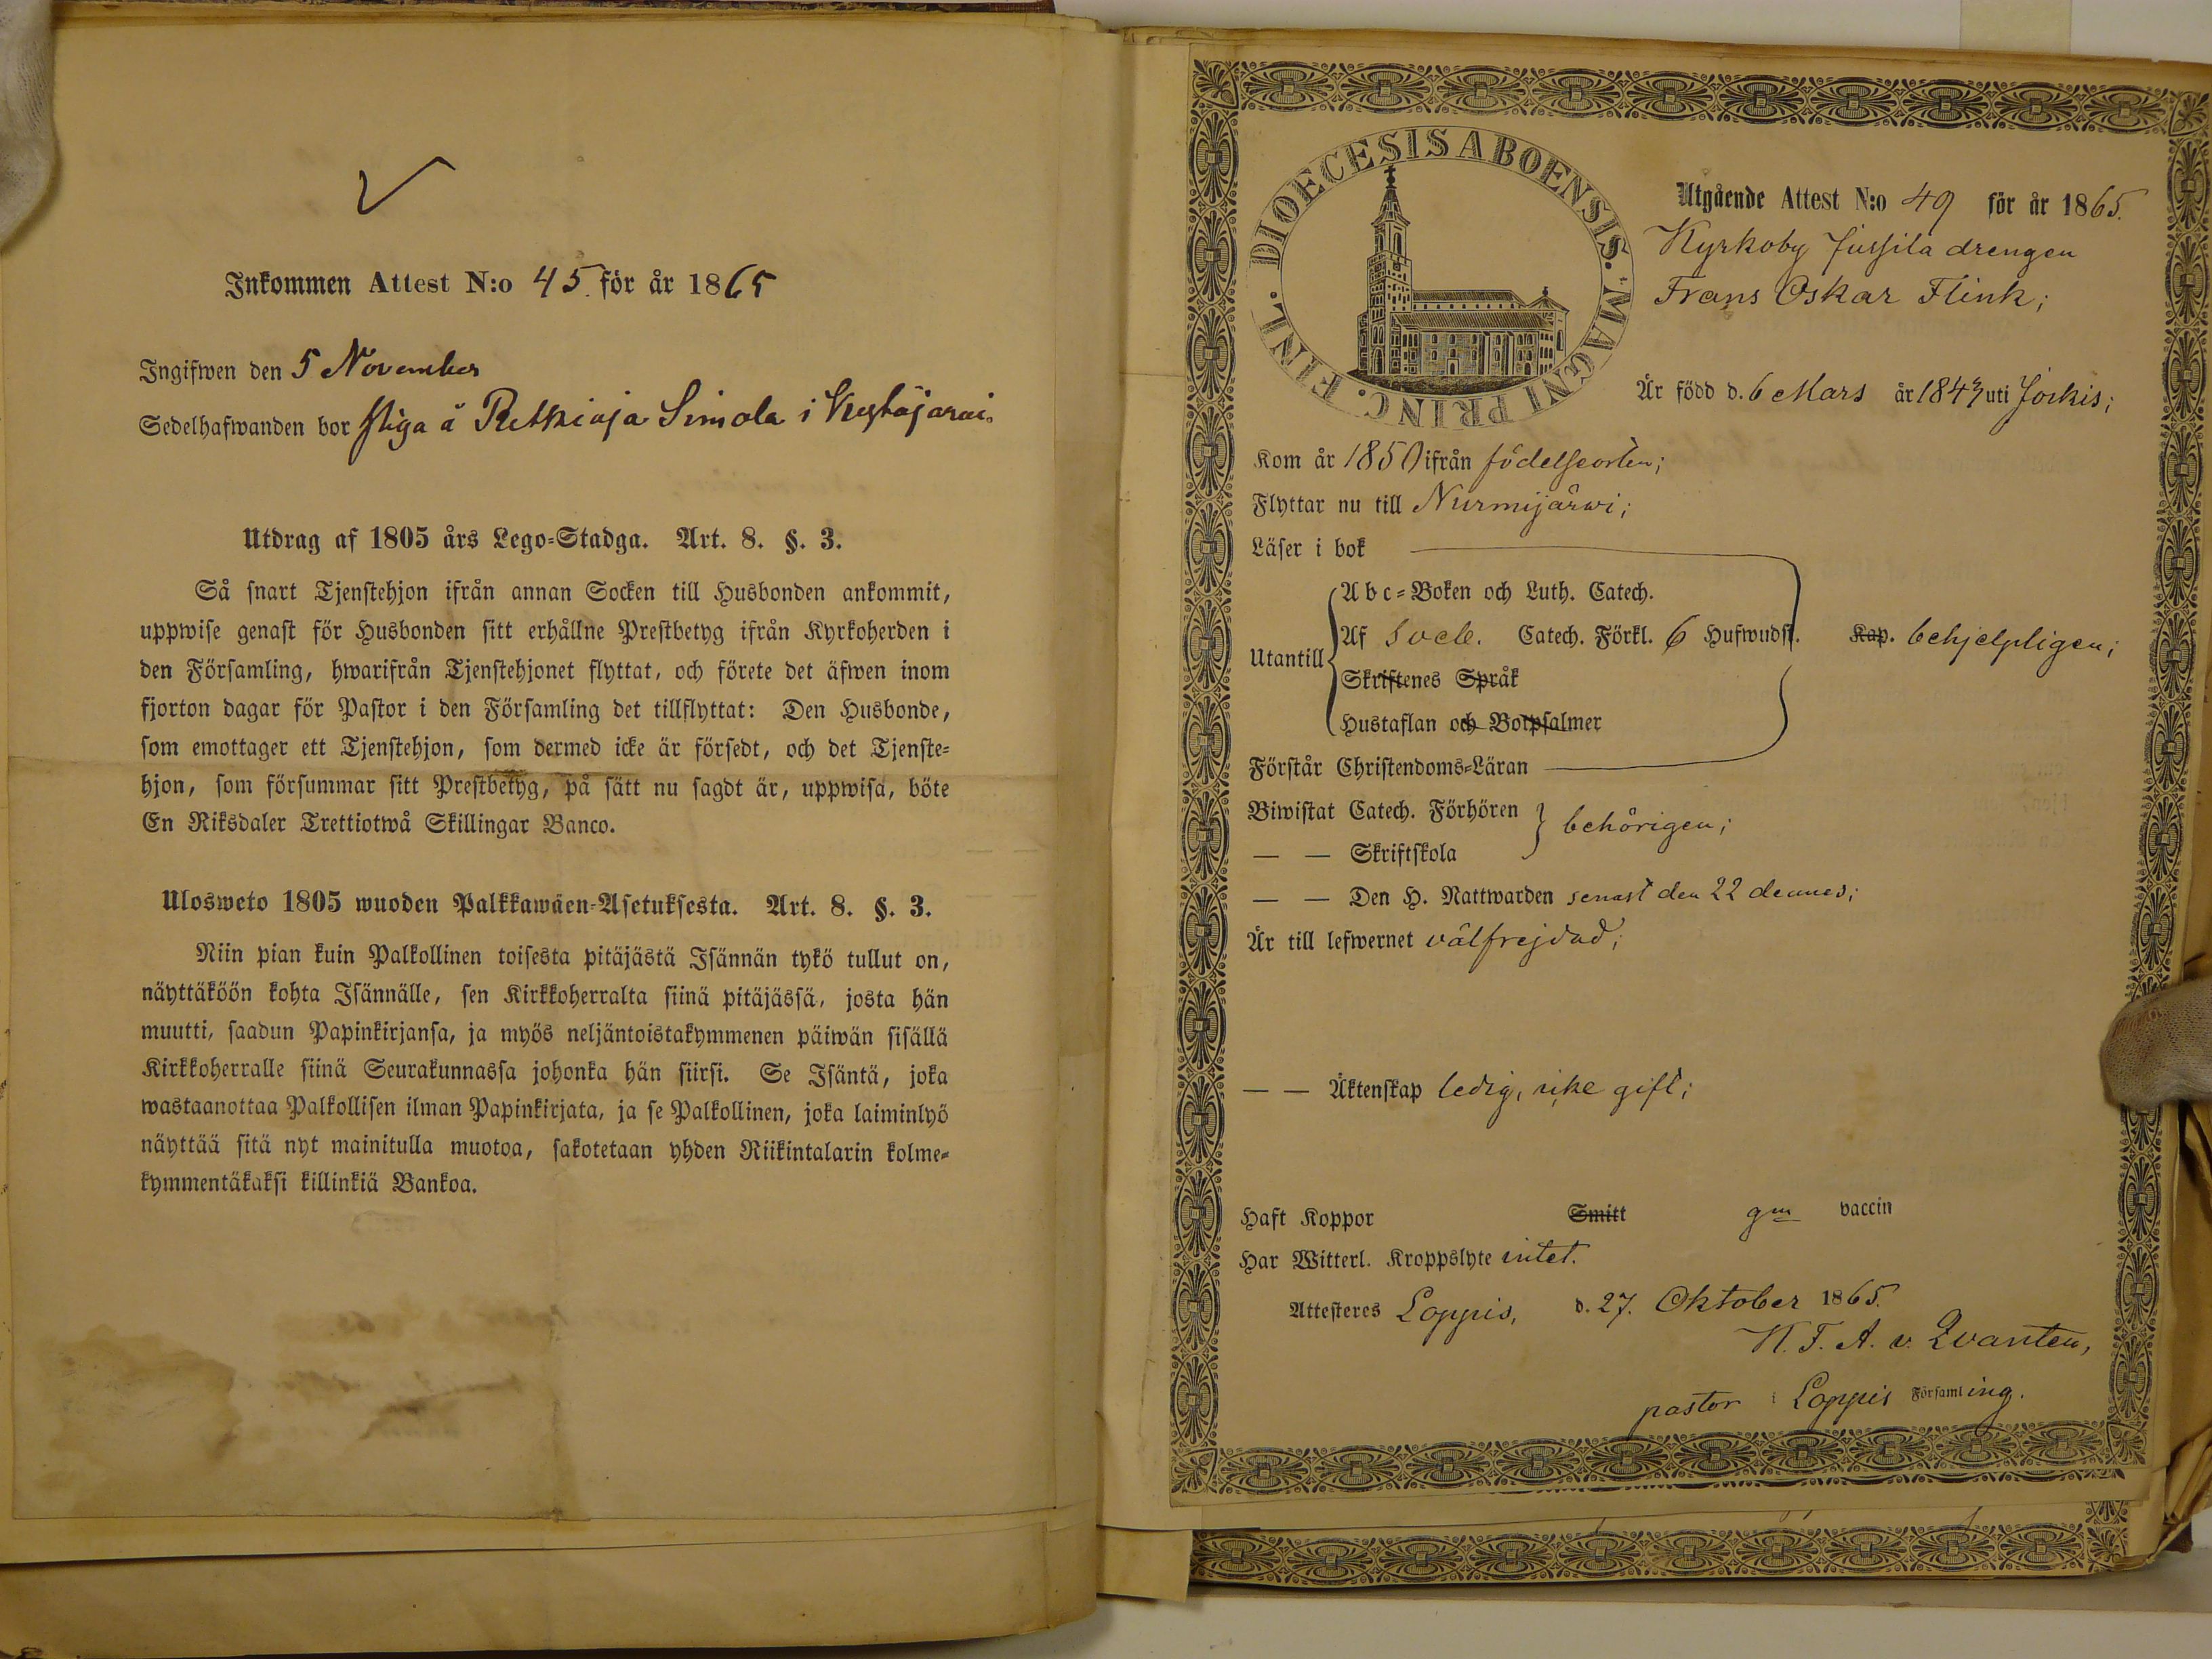 Inkommen Attest N:o 45. för år 1865
Ingifwen den 5 November
Sedelhafwanden bor Piga å Retkioja Simola i Kytäjärvi.
Utdrag af 1805 års Lego=Stadga. Art. 8. §. 3.
Så snart Tjenstehjon ifrån annan Socken till Husbonden ankommit,
uppwise genast för Husbonden sitt erhållne Prestbetyg ifrån Kyrkoherden i
den Församling, hwarifrån Tjenstehjonet flyttat, och förete det äfwen inom
fjorton dagar för Pastor i den Församling det tillflyttat: Den Husbonde,
som emottager ett Tjenstehjon, som dermed icke är försedt, och det Tjenste=
hjon, som försummar sitt Prestbetyg, på sätt nu sagdt är, uppwisa, böte
En Riksdaler Trettiotwå Skillingar Banco.
Ulosweto 1805 wuoden Palkkawäen=Asetuksesta. Art. 8. §. 3.
Niin pian kuin Palkollinen toisesta pitäjästä Isännän tykö tullut on,
näyttäköön kohta Isännälle, sen Kirkkoherralta siinä pitäjässä, josta hän
muutti, saadun Papinkirjansa, ja myös neljäntoistakymmenen päiwän sisällä
Kirkkoherralle siinä Seurakunnassa johonka hän siirsi. Se Isäntä, joka
wastaanottaa Palkollisen ilman Papinkirjata, ja se Palkollinen, joka laiminlyö
näyttää sitä nyt mainitulla muotoa, sakotetaan yhden Riikintalarin kolme=
kymmentäkaksi killinkiä Bankoa.
DIOECESIS ABOENSIS. MAGNI PRINC. FINL.
Utgående Attest N:o 49 för år 1865.
Kyrkoby Jussila drengen
Frans Oskar Flink;
Är född d. 6 Mars år 1843 uti Jockis;
Kom år 1850 ifrån födelseorten;
Flyttar nu till Nurmijärwi;
Läser i bok
Abc=Boken och Luth. Catech.
Utantill Af Sveb. Catech. Förkl. 6 Hufwudst. Kap. behjelpligen;
Skriftenes Språk
Hustaflan och Botpsalmer
Förstår Christendoms=Läran
Biwistat Catech. Förhören
behörigen;
— — Skriftskola
— — Den H. Nattwarden senast den 22 dennes;
Är till lefwernet välfrejdad;
— — Äktenskap ledig, icke gift;
Haft Koppor Smitt gm vaccin
Har Witterl. Kroppslyte intet.
Attesteres Loppis, d. 27. Oktober 1865.
K. F. A. v. Qvanten,
pastor i Loppis Församling.